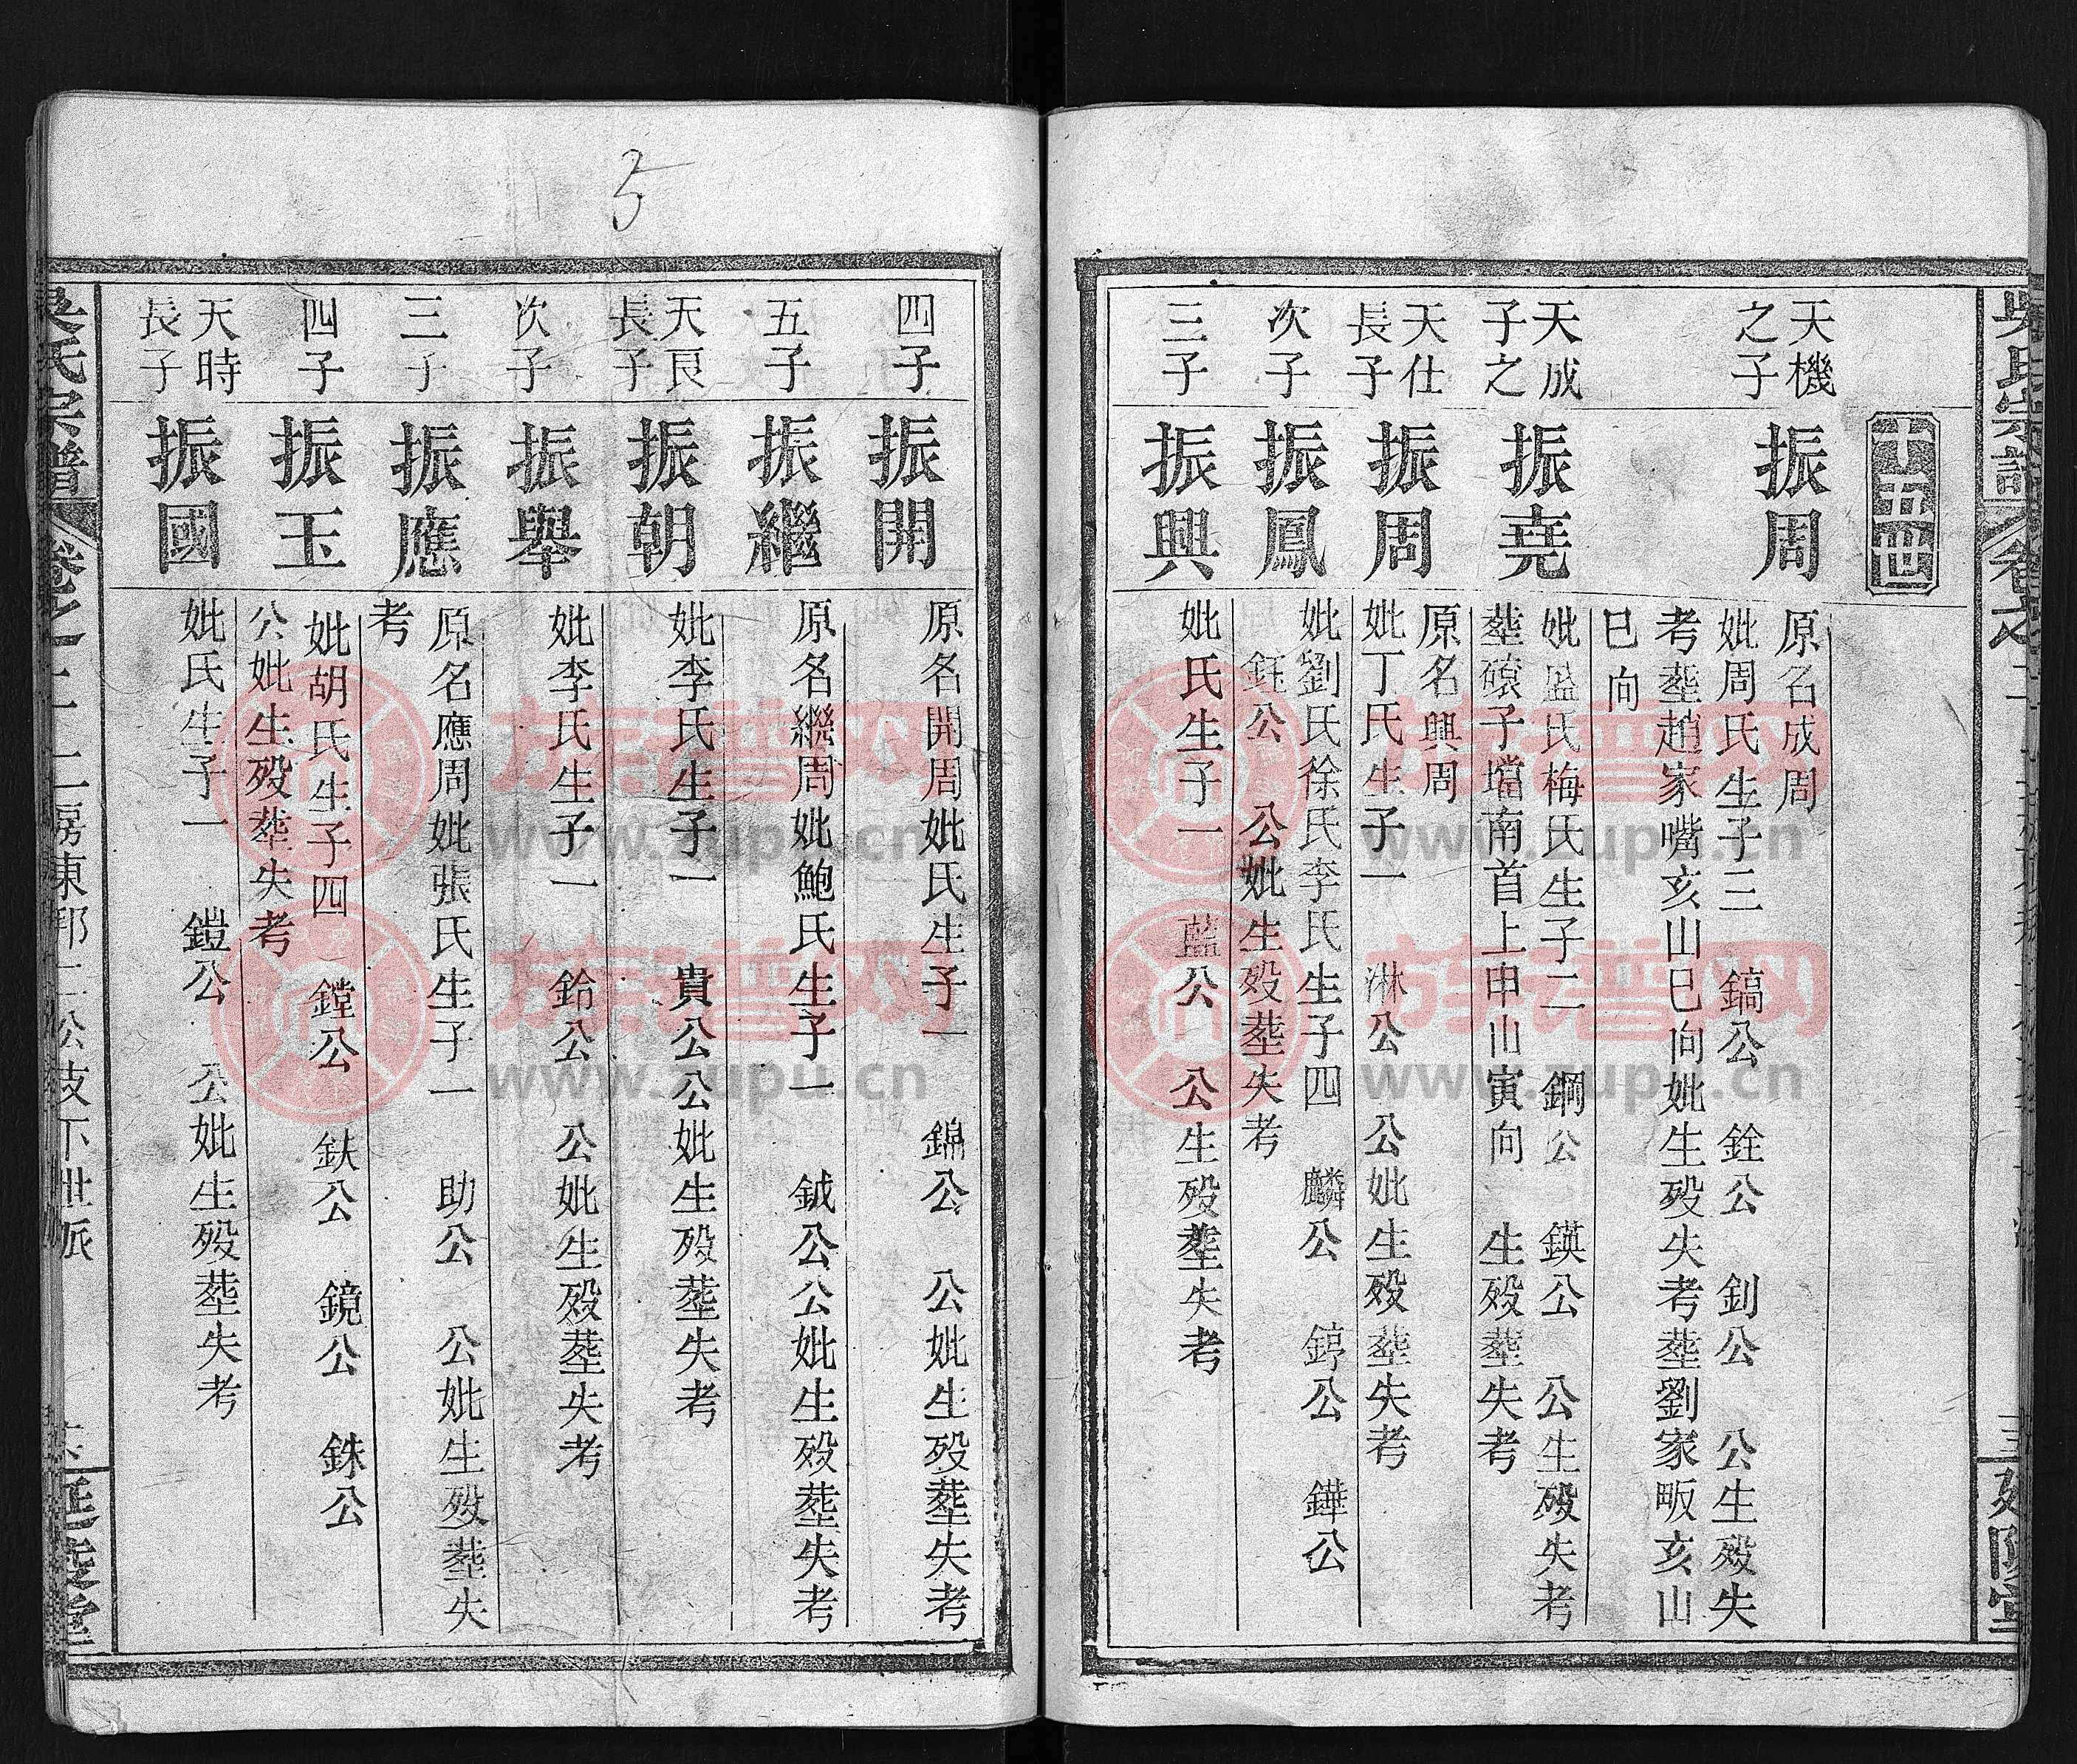 十五世
天機
之子
振周
原名成周
妣周氏生子三 鎬公 銓公 釗公 公生殁失
考塟趙家嘴亥山巳向妣生殁失考塟劉家畈亥山
巳向
天成
子之
振堯
妣盛氏梅氏生子二 鋼公 鍈公 公生殁失考
塟磙子壋南首上申山寅向 生殁塟失考
天仕
長子
振周
原名興周
妣丁氏生子一 淋公 公妣生殁塟失考
次子
振鳳
妣劉氏徐氏李氏生子四 麟公 錞公 鏵公
鈺公 公妣生殁塟失考
三子
振興
妣氏生子一 藍公 公生殁塟失考
四子
振開
原名開周妣氏生子一 錦公 公妣生殁塟失考
五子
振繼
原名繼周妣鮑氏生子一 鉞公公妣生殁塟失考
天良
長子
振朝
妣李氏生子一 貴公公妣生殁塟失考
次子
振舉
妣李氏生子一 鈴公 公妣生殁塟失考
三子
振應
原名應周妣張氏生子一 助公 公妣生殁塟失
考
四子
振玉
妣胡氏生子四 鏜公 鈇公 鏡公 銖公
公妣生殁塟失考
天時
長子
振國
妣氏生子一 鎧公 公妣生殁塟失考
吳氏宗譜
延陵堂
5
族譜网
www.zupu.cn
族譜网
www.zupu.cn
族譜网
www.zupu.cn
族譜网
www.zupu.cn